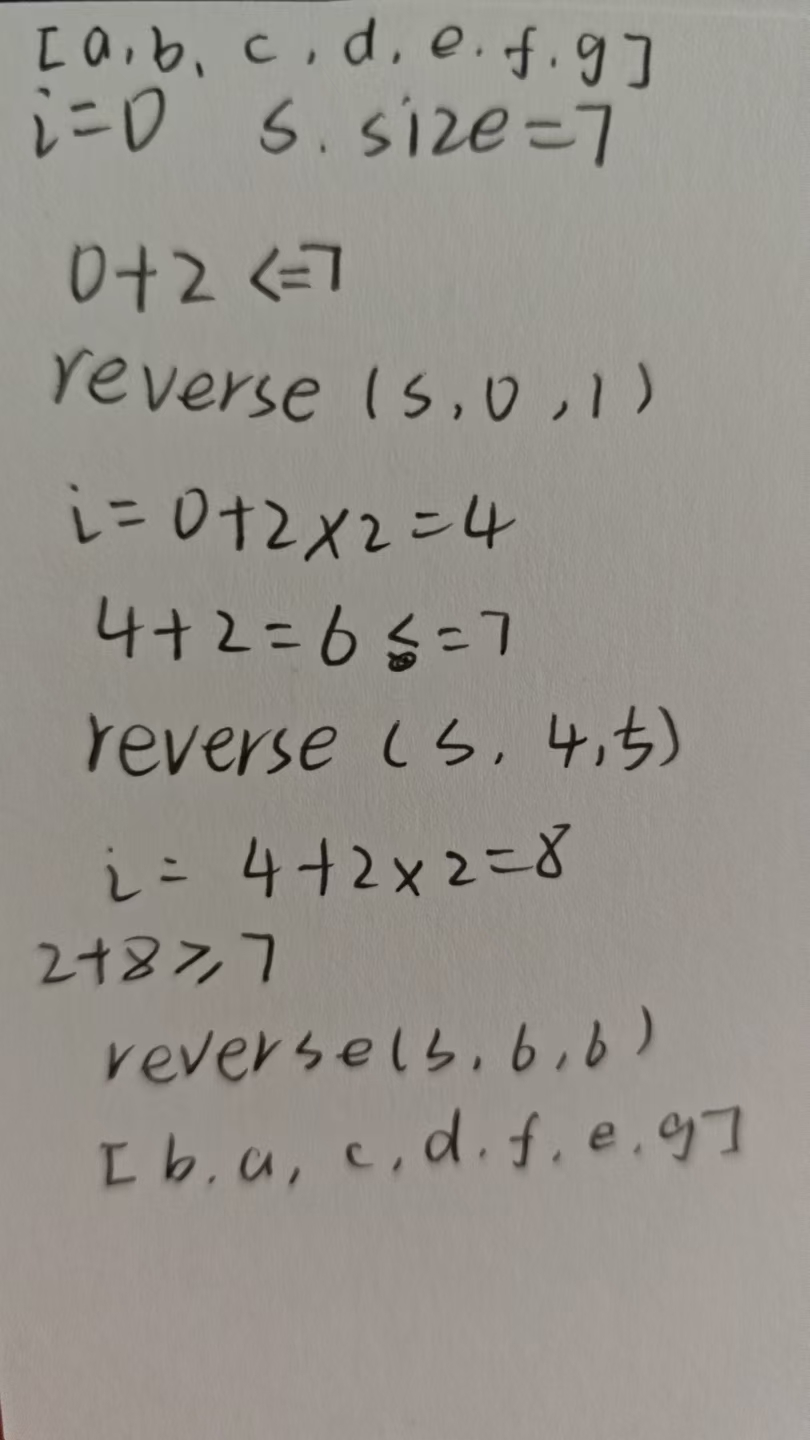 [a,b, c, d, e. f. g]
i=0 s. size=7
0+2 <=7
reverse (s, 0, 1)
i=0+2×2=4
4+2=6 ≤=7
reverse (s, 4,5)
i= 4+2×2=8
2+8≥7
reverse(s, 6,6)
[b.a, c, d. f. e. g]